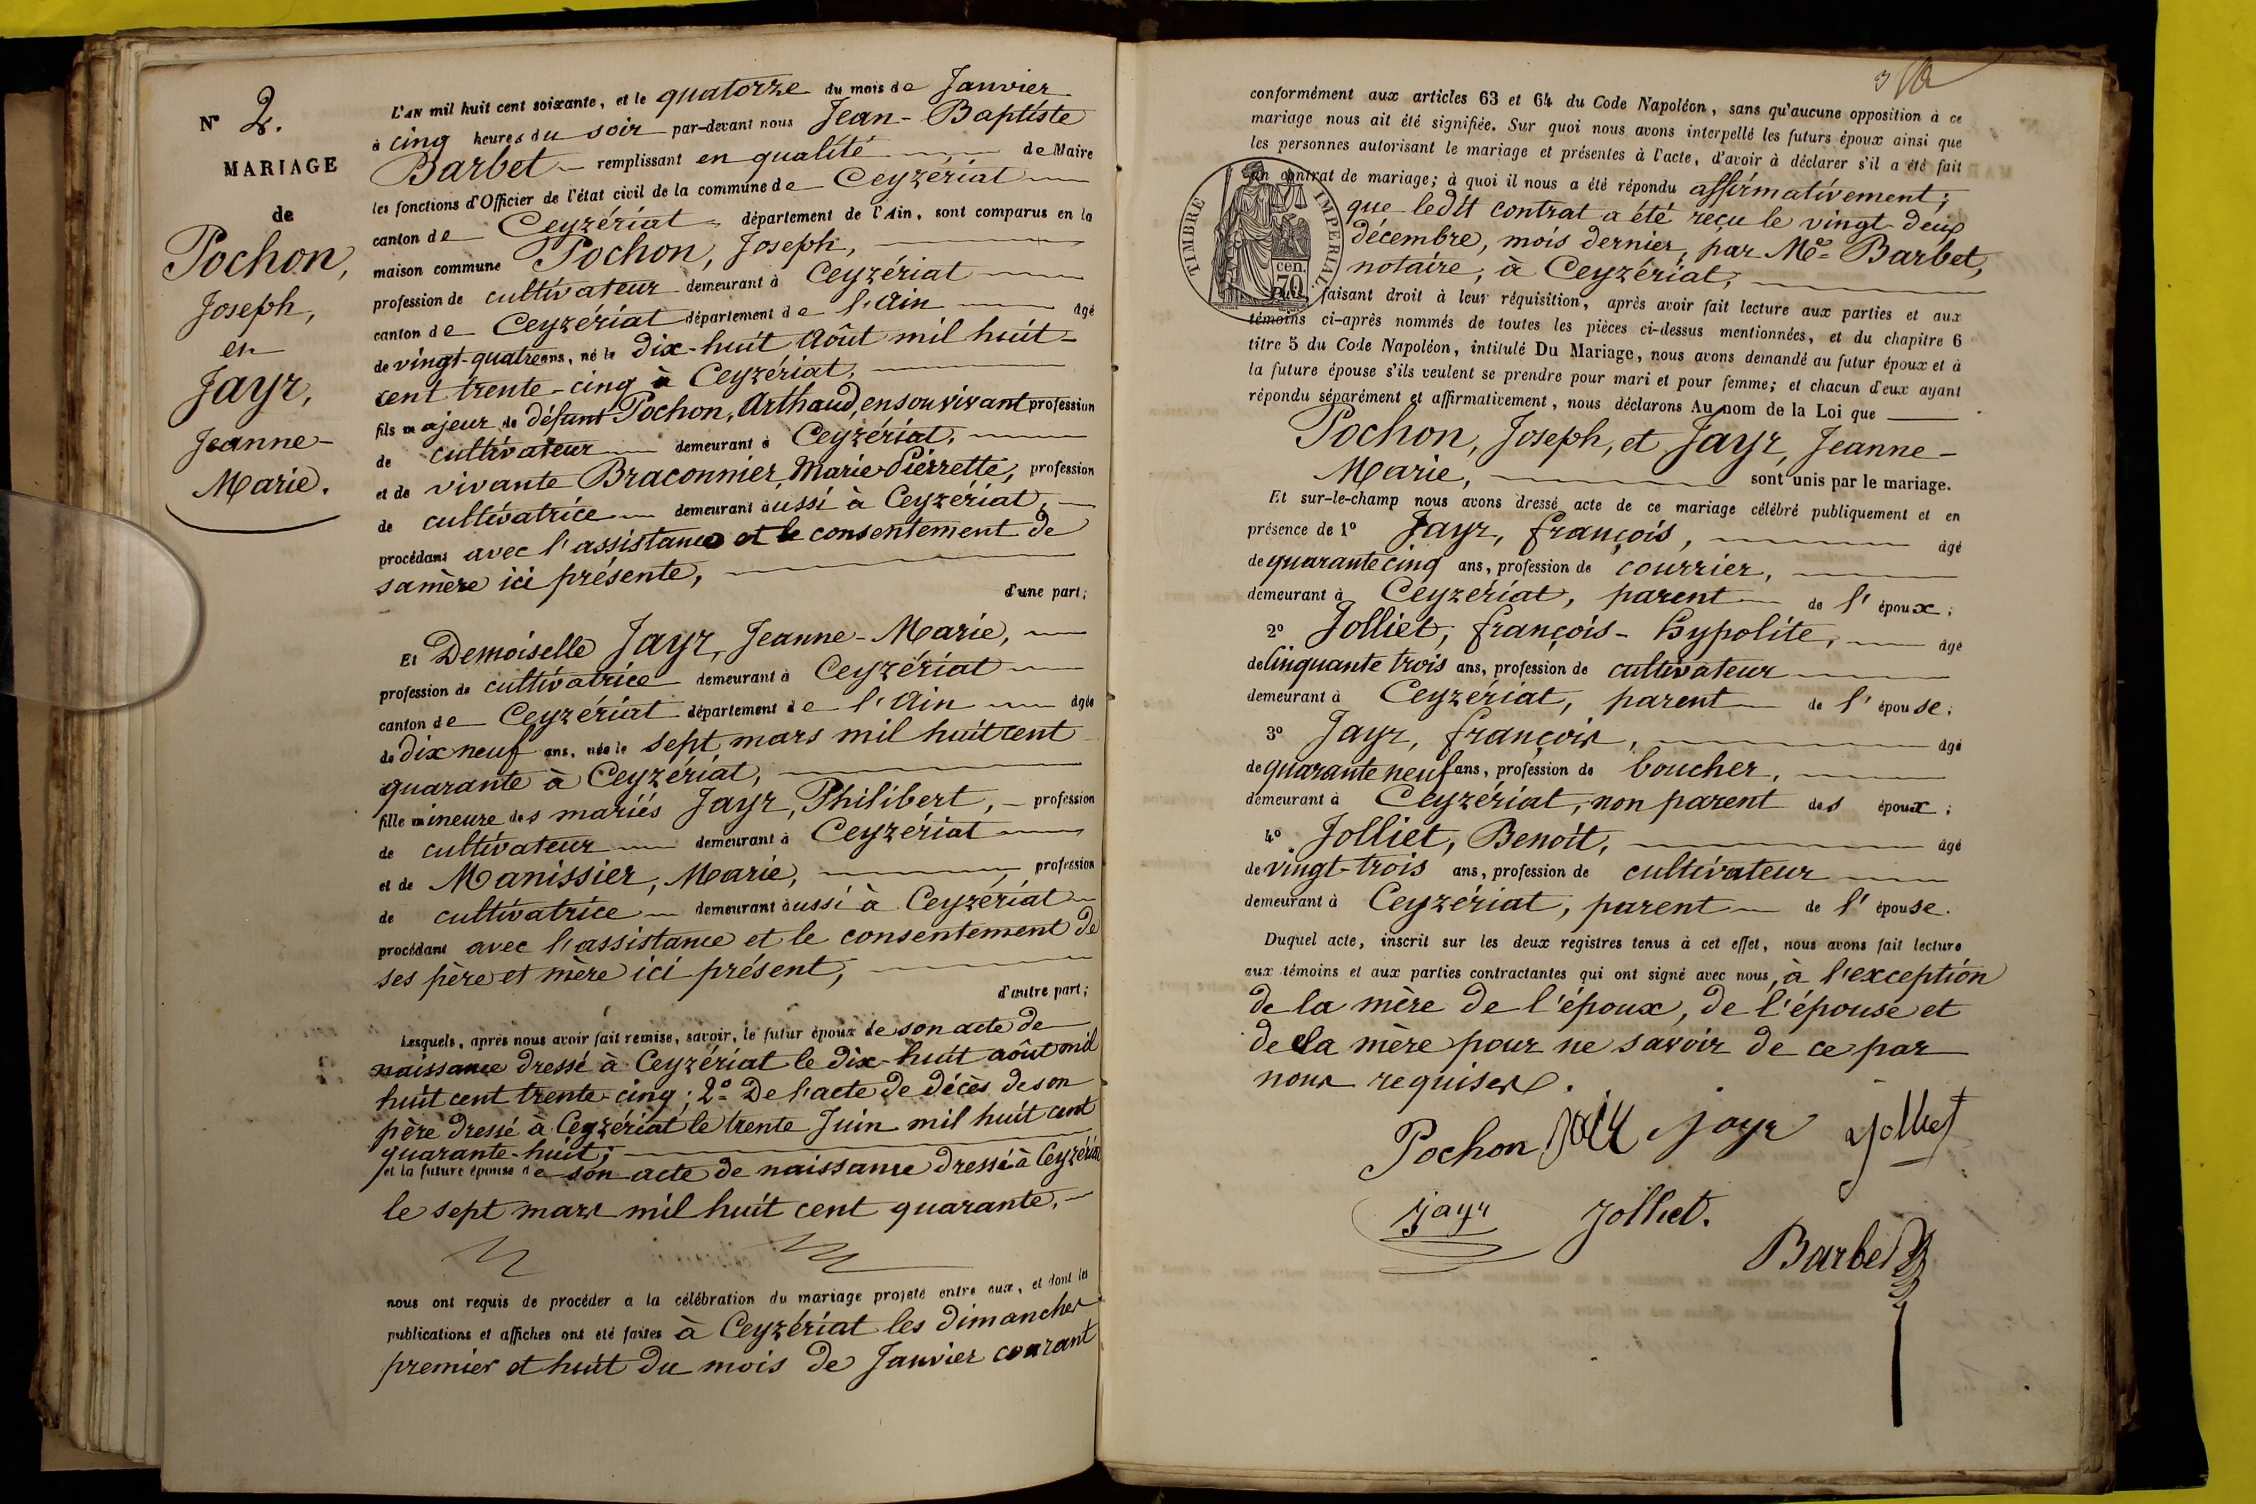 N° 2.
MARIAGE
de
Pochon,
Joseph,
et
Jayr,
Jeanne-
Marie.
L'AN mil huit cent soixante, et le quatorze du mois de Janvier
à cinq heures du soir par-devant nous Jean-Baptiste
Barbet remplissant en qualité de Maire
les fonctions d'Officier de l'état civil de la commune de Ceyzériat
canton de Ceyzériat département de l'Ain, sont comparus en la
maison commune Pochon, Joseph,
profession de cultivateur demeurant à Ceyzériat
canton de Ceyzériat département de l'Ain âgé
de vingt-quatre ans, né le dix-huit Août mil huit-
cent trente-cinq à Ceyzériat,
fils majeur de défunt Pochon, Arthaud, en son vivant profession
de cultivateur demeurant à Ceyzériat,
et de vivante Braconnier, Marie Pierrette, profession
de cultivatrice demeurant aussi à Ceyzériat,
procédant avec l'assistance et le consentement de
sa mère ici présente,
d'une part;
Et Demoiselle Jayr, Jeanne-Marie,
profession de cultivatrice demeurant à Ceyzériat
canton de Ceyzériat département de l'Ain âgée
de dix neuf ans, née le sept mars mil huit cent
quarante à Ceyzériat,
fille mineure des mariés Jayr, Philibert, profession
de cultivateur demeurant à Ceyzériat
et de Manissier, Marie, profession
de cultivatrice demeurant aussi à Ceyzériat
procédant avec l'assistance et le consentement de
ses père et mère ici présent,
d'autre part;
Lesquels, après nous avoir fait remise, savoir, le futur époux de son acte de
naissance dressé à Ceyzériat le dix-huit août mil
huit cent trente-cinq; 2° De l'acte de décès de son
père dressé à Ceyzériat le trente Juin mil huit cent
quarante-huit;
et la future épouse de son acte de naissance dressé à Ceyzériat
le sept mars mil huit cent quarante.
nous ont requis de procéder à la célébration du mariage projeté entre eux, et dont les
publications et affiches ont été faites à Ceyzériat les dimanches
premier et huit du mois de Janvier courant
3
conformément aux articles 63 et 64 du Code Napoléon, sans qu'aucune opposition à ce
mariage nous ait été signifiée. Sur quoi nous avons interpellé les futurs époux ainsi que
les personnes autorisant le mariage et présentes à l'acte, d'avoir à déclarer s'il a été fait
un contrat de mariage; à quoi il nous a été répondu affirmativement;
que ledit contrat a été reçu le vingt-deux
décembre, mois dernier, par Me Barbet,
notaire, à Ceyzériat,
TIMBRE IMPERIAL.
70 cen.
Puis, faisant droit à leur réquisition, après avoir fait lecture aux parties et aux
témoins ci-après nommés de toutes les pièces ci-dessus mentionnées, et du chapitre 6
titre 5 du Code Napoléon, intitulé Du Mariage, nous avons demandé au futur époux et à
la future épouse s'ils veulent se prendre pour mari et pour femme; et chacun d'eux ayant
répondu séparément et affirmativement, nous déclarons Au nom de la Loi que
Pochon, Joseph, et Jayr, Jeanne-
Marie, sont unis par le mariage.
Et sur-le-champ nous avons dressé acte de ce mariage célébré publiquement et en
présence de 1° Jayr, françois, âgé
de quarante cinq ans, profession de courrier,
demeurant à Ceyzériat, parent de l'époux;
2° Jolliet, françois-hypolite, âgé
de Cinquante trois ans, profession de cultivateur
demeurant à Ceyzériat, parent de l'épouse;
3° Jayr, françois, âgé
de quarante neuf ans, profession de boucher,
demeurant à Ceyzériat, non parent des époux;
4° Jolliet, Benoit, âgé
de vingt-trois ans, profession de cultivateur
demeurant à Ceyzériat, parent de l'épouse.
Duquel acte, inscrit sur les deux registres tenus à cet effet, nous avons fait lecture
aux témoins et aux parties contractantes qui ont signé avec nous, à l'exception
de la mère de l'époux, de l'épouse et
de sa mère pour ne savoir de ce par
nous requises.
Pochon Jair Jayr Jolliet
Jayr Jolliet.
Barbet